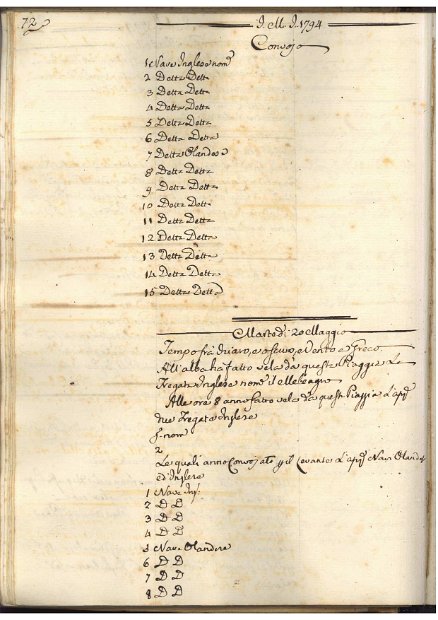 72
d. M. d. 1794
Convojo
1 Nave Inglese nom.e
2 Detta Detta
3 Detta Detta
4 Detta Detta
5 Detta Detta
6 Detta Detta
7 Detta Olandese
8 Detta Detta
9 Detta Detta
10 Detta Detta
11 Detta Detta
12 Detta Detta
13 Detta Detta
14 Detta Detta
15 Detta Detta
Martedi 20 Maggio
Tempo frà chiaro, e ofcuro, e Vento a Greco
All'alba ha fatto vela da queste Piaggie La
Fregata Inglese nom.
Alle ore 8 anno fatto vela da queste Piaggie
due Fregate Inglese
2
Le quali anno Convojato p il Levante Nave Olandes
ed Inglese
1 Nave Ing.
2 D D
3 D D
4 D D
5 Nave Olandese
6 D D
7 D D
8 D D